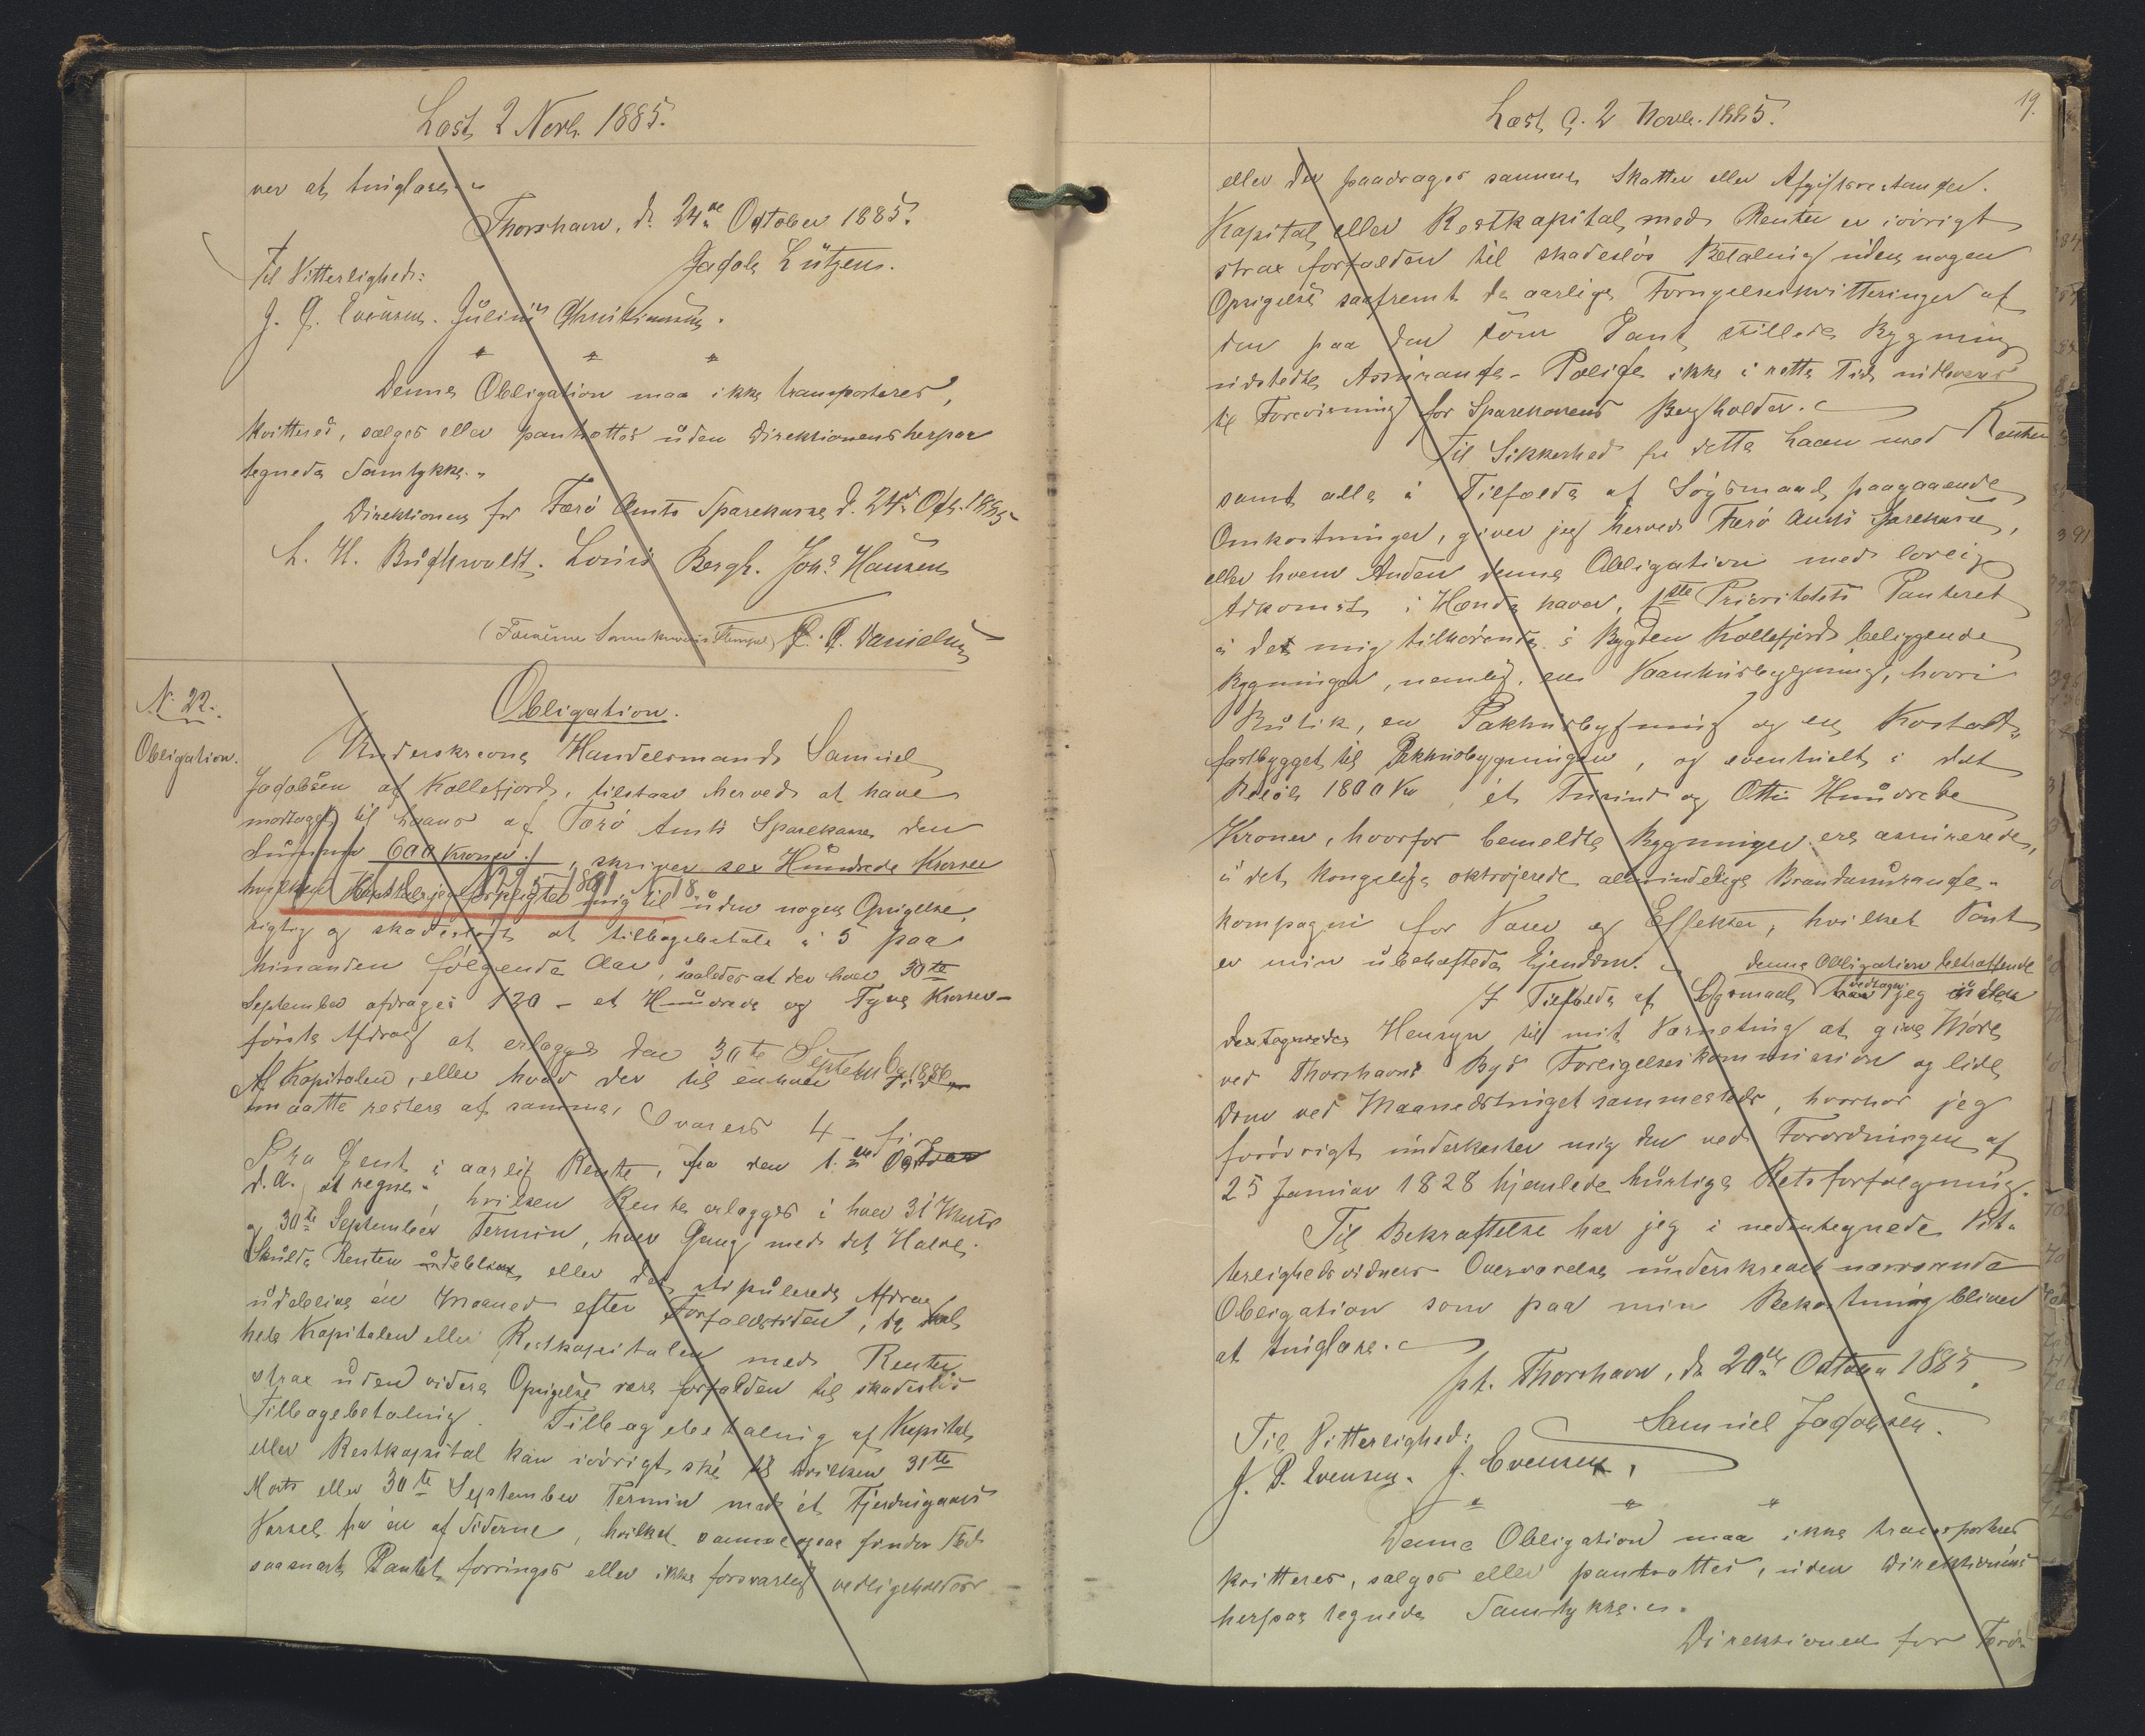 Læst 2 Novb. 1885.
ver at tinglæse.
Thorshavn, d. 24de October 1885.
Jacob Lützen.
Til Vitterlighed:
J. P. Evensen. Julius Christiansen.
Denne Obligation maa ikke transporteres,
kvitteres, sælges eller pantsættes uden Direktionens herpaa
tegnede Samtykke.
Direktionen for Færö Amts Sparekasse d. 24de Oct. 1885
L. H. Buchwaldt. Louis Bergh. Johs Hansen
P. P. Danielsen
N. 22.
Obligation.
Obligation.
Underskrevne Handelsmand Samuel
Jacobsen af Kollefjord, tilstaar herved at have
modtaget til Laans af Færö Amts Sparekasse den
Summa 600 Kroner, skriver sex Hundrede Kroner
hvilken Kapital jeg forpligter mig til uden nogen Opsigelse,
rigtig og skadeslöst at tilbagebetale i 5 paa
hinanden fölgende Aar, saaledes at der hver 30te
September afdrages 120 - et Hundrede og Tyve Kroner -
förste Afdrag at erlægge den 30te September 1886
Af Kapitalen, eller hvad der til enhver Tid
maatte restere af samme, svares 4 - fire
Pro Cent i aarlig Rente, fra den 1ste October
d. A. at regne, hvilken Rente erlægges i hver 31 Marts
og 30te September Termin, hver Gang med det Halve.
Skulde Renten udeblive eller det stipulerede Afdrag
udeblive én Maaned efter Forfaldstiden, da skal
hele Kapitalen eller Restkapitalen med Renter
strax uden videre Opsigelse være forfalden til skadeslös
Tilbagebetaling. Tilbagebetaling af Kapital
eller Restkapital kan iövrigt ske til hvilken 31te
Marts eller 30te September Termin med ét Fjerdingaars
Varsel fra én af Siderne, hvilket samme ogsaa finder Sted
saasnart Pantet forringes eller ikke forsvarlig vedligeholdes
Læst d. 2 Novb. 1885.
19.
eller der paadrages samme Skatter eller Afgiftsrestancer.
Kapital eller Restkapital med Renter er iövrigt
strax forfalden til skadeslös Betaling uden nogen
Opsigelse saafremt de aarlige Fornyelseskvitteringer af
den paa den som Pant stillede Bygning
udstedte Assurance-Police ikke i rette Tid indleveres
til Forevisning for Sparekassens Bogholder.
Til Sikkerhed for dette Laan med Renter
samt alle i Tilfælde af Sögsmaal paagaaende
Omkostninger, giver jeg herved Færö Amts Sparekasse,
eller hvem Anden denne Obligation med lovlig
Adkomst i Hænde haver, 1ste Prioritets Panteret
i det mig tilhörende i Bygden Kollefjord beliggende
Bygninger, nemlig en Vaanhusbygning, hvori
Butik, en Pakhusbygning og en Kostald
fastbygget til Pakhusbygningen, og eventuelt i det
Belöb 1800 Kr, ét Tusind og Otte Hundrede
Kroner, hvorfor bemeldte Bygninger ere assurerede,
i det kongelige oktrojerede almindelige Brandassurance-
kompagni for Varer og Effekter, hvilket Pant
er min ubehæftede Ejendom.
denne Obligation betræffende
I Tilfælde af Sögsmaal vedtager jeg uden
Hensyn til mit Værneting at give Möde
ved Thorshavns Byes Forligelseskommission og lide
Dom ved Maanedstinget sammesteds, hvorhos jeg
forövrigt underkaster mig den ved Forordningen af
25 Januar 1828 hjemlede hurtige Retsforfölgning.
Til Bekræftelse har jeg i nedentegnede Vit-
terlighedsvidners Overværelse underskrevet nærværende
Obligation som paa min Bekostning bliver
at tinglæse.
pt. Thorshavn, d. 20de October 1885.
Samuel Jacobsen.
Til Vitterlighed:
J. P. Evensen. J. Evensen.
Denne Obligation maa ikke transporteres
kvitteres, sælges eller pantsættes, uden Direktionens
herpaa tegnede Samtykke.
Direktionen for Færö